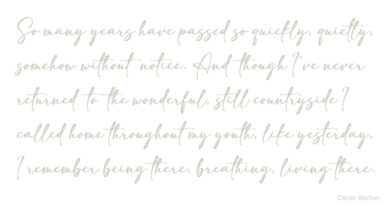 So many years have passed so quickly, quietly,
somehow without notice. And though I've never
returned to the wonderful, still countryside I
called home throughout my youth, like yesterday,
I remember being there, breathing, living there.
Derek Becher